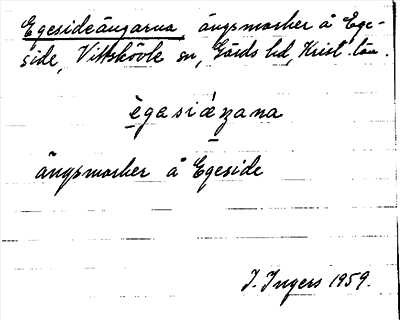 Egesideängarna, ängsmarker å Ege-
side, Vittskövle sn, Gärds hd, Krist. län.
ègasiæŋana
ängsmarker å Egeside
I. Ingers 1959.